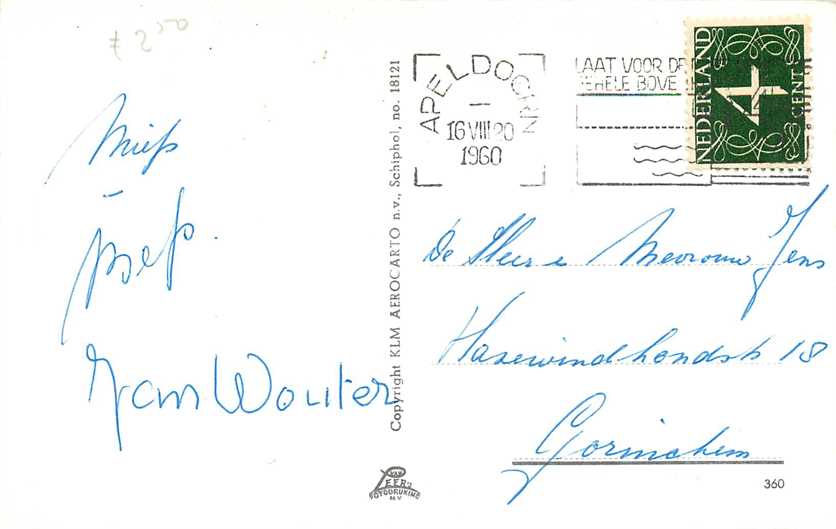 ƒ 250
Miep
–
Joep.
Jan Wouter
Copyright KLM AEROCARTO n.v., Schiphol, no. 18121
APELDOORN
–
16 VIII 20
1960
LAAT VOOR DE
GEHELE BOVE
NEDERLAND
4
CENT
De Heer e Mevrouw Jens
Hazewindhondstr 18
Gorinchem
VAN
LEER'S
FOTODRUKIND
N.V.
360